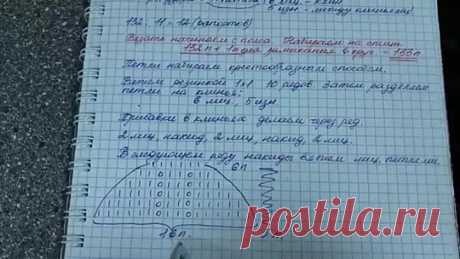 5 изн - между клиньями
132 : 11 = 12 (рапортов)
Вязать начинаем с пояса. Набираем на спицы
132 п + 1 п для замыкания в круг = 133 п
Петли набираем крестообразным способом.
Вяжем резинкой 1х1 10 рядов. Затем разделяем
петли на клинья:
6 лиц, 5 изн.
Прибавки в клиньях делаем через ряд
2 лиц, накид, 2 лиц, накид, 2 лиц.
В следующем ряду накиды вяжем лиц. петлями.
6 п
16 п.